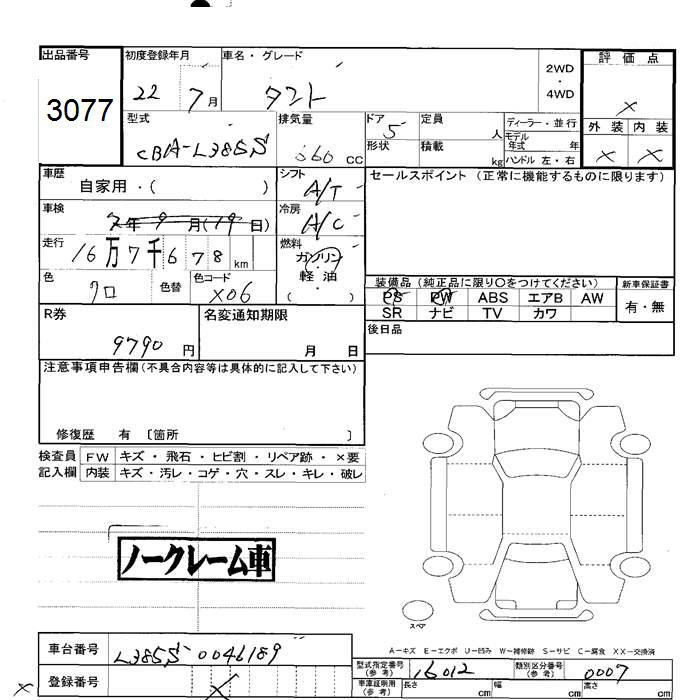 出品番号
3077
初度登録年月
22 7月
車名・グレード
タント
2WD
・
4WD
評価点
×
外装 内装
× ×
型式
CBA-L385S
排気量
660 CC
ドア 5
形状
定員 人
積載 kg
ディーラー・並行
モデル年式 年
ハンドル 左・右
車歴
自家用・( )
シフト
A/T
セールスポイント (正常に機能するものに限ります)
車検
年9月(19日)
冷房
A/C
走行
16万7千678km
燃料
ガソリン
・
軽油
( )
色
クロ
色替
色コード
X06
装備品 (純正品に限り○をつけてください)
PS PW ABS エアB AW
SR ナビ TV カワ
新車保証書
有・無
R券
9790円
名変通知期限
月 日
後日品
注意事項申告欄(不具合内容等は具体的に記入して下さい)
修復歴 有 〔箇所 〕
検査員記入欄
FW キズ・飛石・ヒビ割・リペア跡・×要
内装 キズ・汚レ・コゲ・穴・スレ・キレ・破レ
ノークレーム車
スペア
A-キズ E-エクボ U-凹み W-補修跡 S-サビ C-腐食 XX-交換済
車台番号
L385S-0046189
登録番号
×
型式指定番号(参考)
16012
類別区分番号(参考)
0007
車庫証明用(参考)
長さ cm
幅 cm
高さ cm
×